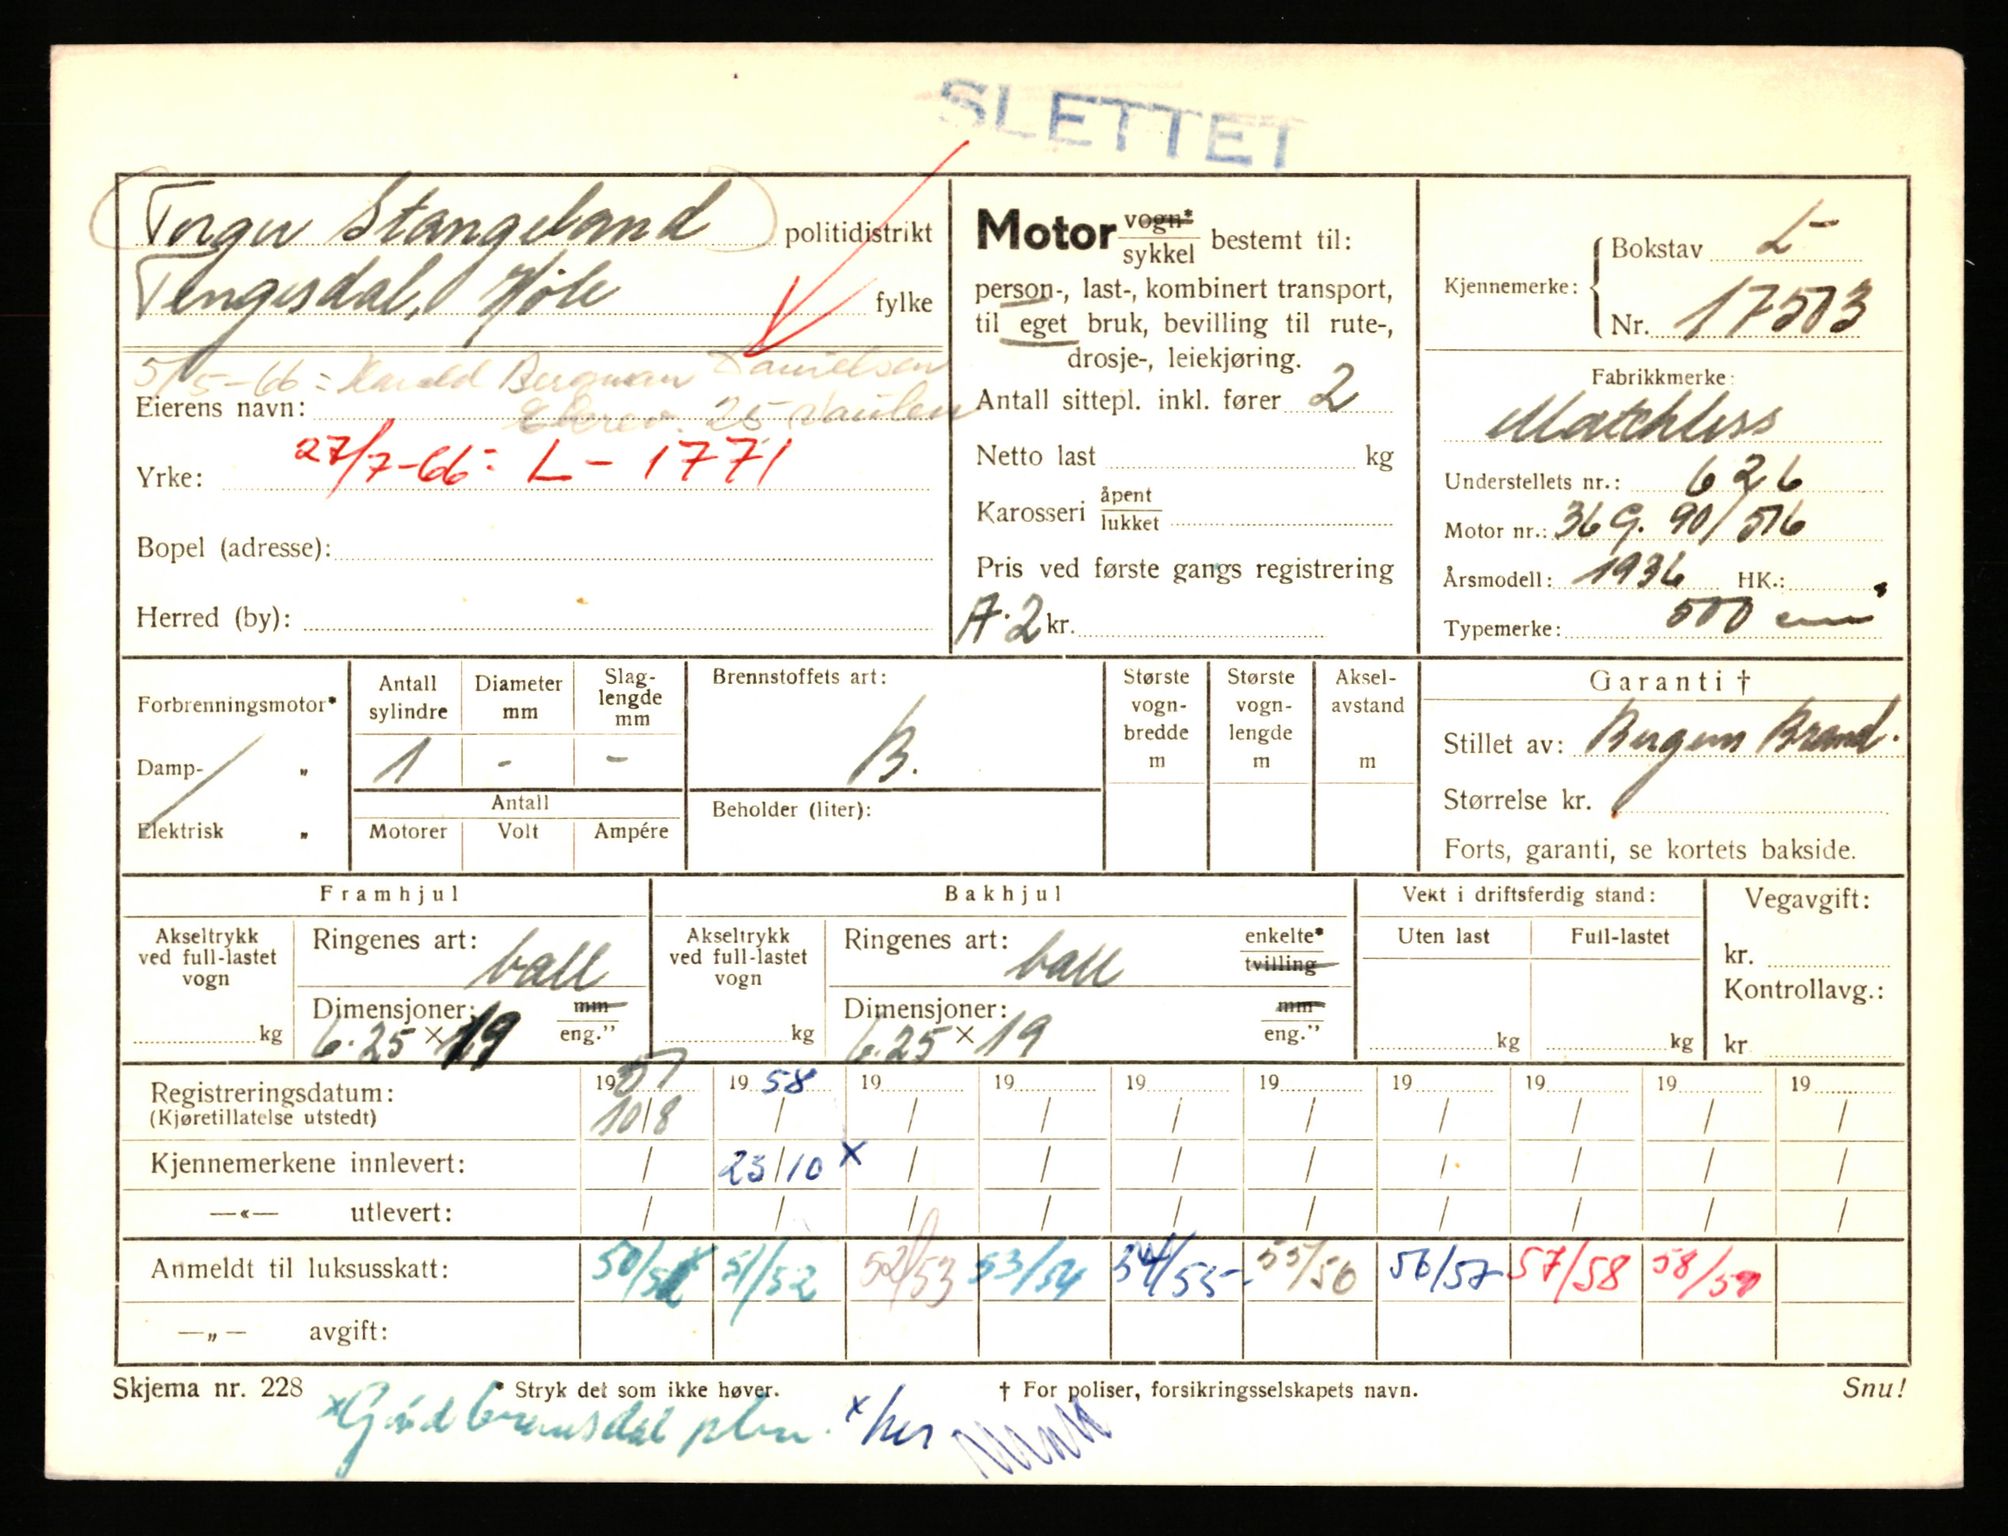 SLETTET
Torger Stangeland politidistrikt
Tengesdal, Høle fylke
5/5-66 = Harald Bergman Danielsen
Eierens navn: 25 Vaulen
27/7-66: L - 1771
Yrke:
Bopel (adresse):
Herred (by):
Motor vogn*/sykkel bestemt til:
person-, last-, kombinert transport,
til eget bruk, bevilling til rute-,
drosje-, leiekjøring.
Antall sittepl. inkl. fører 2
Netto last kg
Karosseri åpent/lukket
Pris ved første gangs registrering
A.2 kr.
Kjennemerke: Bokstav L-
Nr. 17503
Fabrikkmerke:
Matchless
Understellets nr.: 626
Motor nr.: 36 G. 90/516
Årsmodell: 1936 HK.:
Typemerke: 500 ccm
Forbrenningsmotor*
Damp- „
Elektrisk „
Antall sylindre Diameter mm Slag-lengde mm
1 - -
Antall
Motorer Volt Ampére
Brennstoffets art:
B.
Beholder (liter):
Største vogn-bredde m
Største vogn-lengde m
Aksel-avstand m
Garanti †
Stillet av: Bergens Brand.
Størrelse kr.
Forts, garanti, se kortets bakside.
Framhjul
Akseltrykk ved full-lastet vogn kg
Ringenes art: ball
Dimensjoner: mm/eng."
6.25 × 19
Bakhjul
Akseltrykk ved full-lastet vogn kg
Ringenes art: ball enkelte*/tvilling
Dimensjoner: mm/eng."
6.25 × 19
Vekt i driftsferdig stand:
Uten last Full-lastet
kg kg
Vegavgift:
kr.
Kontrollavg.:
kr
Registreringsdatum: 1951 19 58 19 19 19 19 19 19 19 19
(Kjøretillatelse utstedt) 10/8 / / / / / / / / /
Kjennemerkene innlevert: / 23/10 x / / / / / / / /
—«— utlevert: / / / / / / / / / /
Anmeldt til luksusskatt: 50/51 x 51/52 52/53 53/54 54/55 55/56 56/57 57/58 58/59
—„— avgift:
Skjema nr. 228 * Stryk det som ikke høver. † For poliser, forsikringsselskapets navn. Snu!
x her